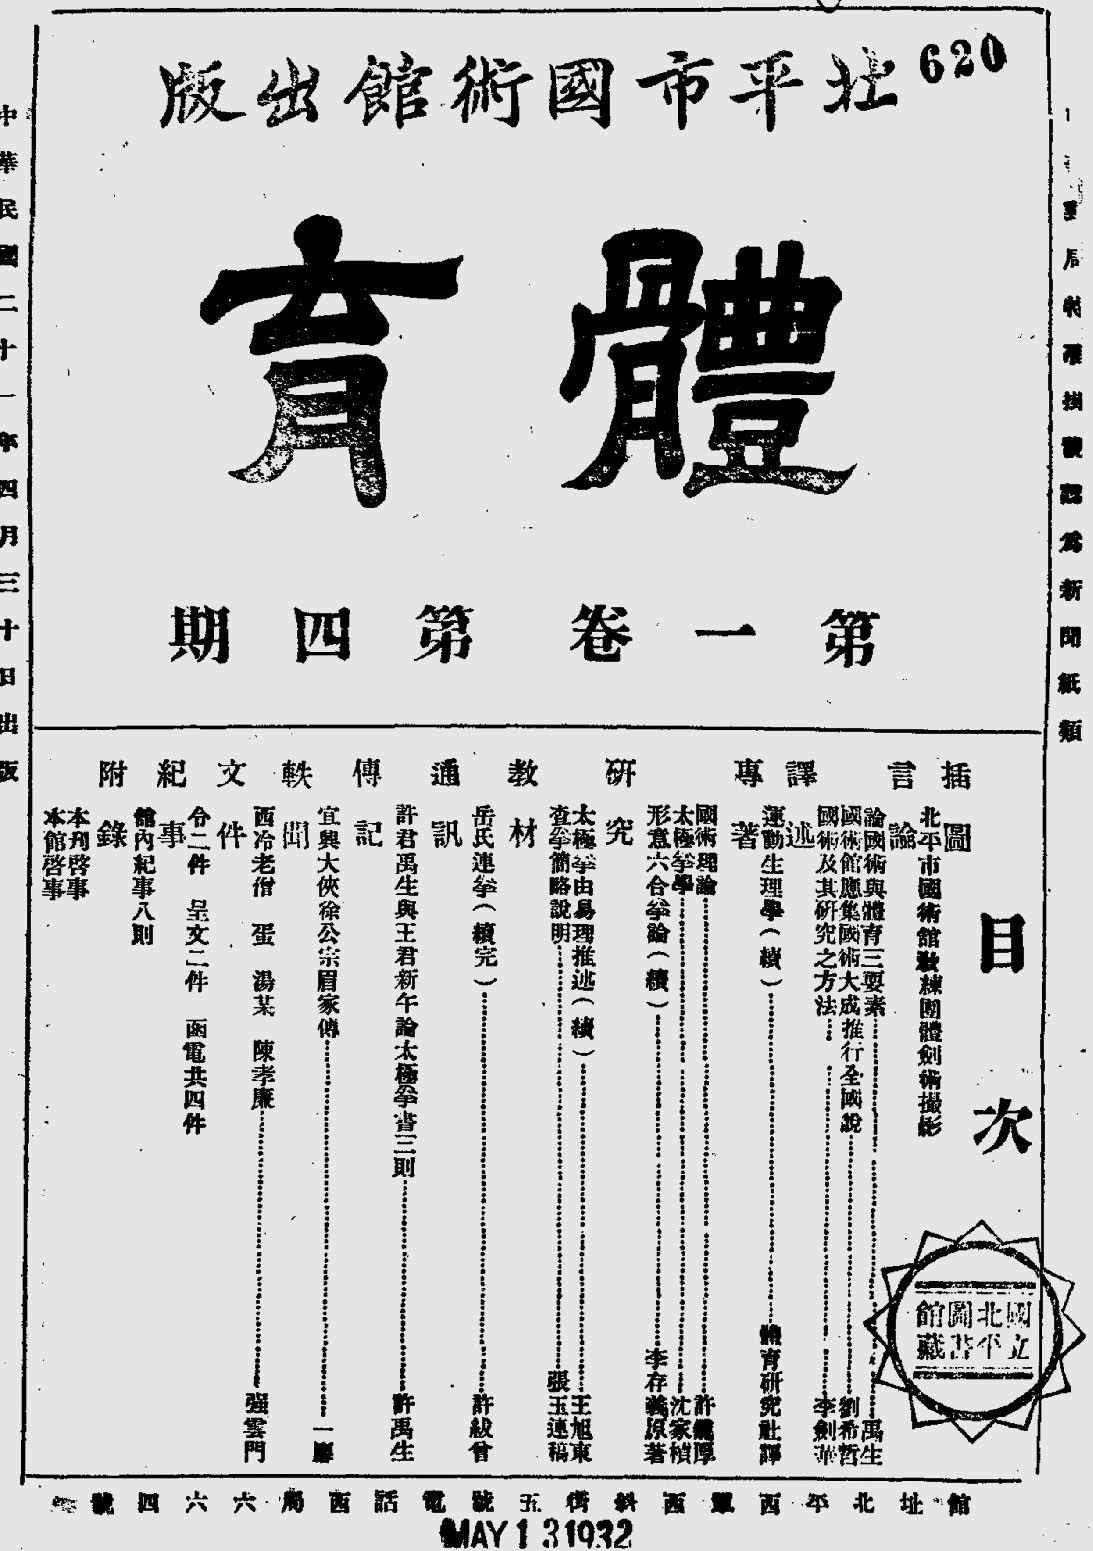 620
北平市國術館出版
體育
第一卷 第四期
中華郵局特准掛號認為新聞紙類
中華民國二十一年四月三十日出版
目次
插圖
北平市國術館教練團體劍術撮影
言論
論國術與體育三要素 禹生
國術館應集國術大成推行全國說 劉希哲
國術及其研究之方法 李劍華
譯述
運動生理學(續) 體育研究社譯
專著
國術理論 許龗厚
太極拳學 沈家楨
形意六合拳論(續) 李存義原著
研究
太極拳由易理推述(續) 王旭東
查拳簡略說明 張玉連稿
教材
岳氏連拳(續完) 許紱曾
通訊
許君禹生與王君新午論太極拳書三則 許禹生
傳記
宜興大俠徐公宗眉家傳 一廛
軼聞
西冷老僧 蛋 湯某 陳孝廉 強雲門
文件
令二件 呈文二件 函電共四件
紀事
館內紀事八則
附錄
本刊啓事
本館啓事
國立北平圖書館藏
館址北平西單西斜街五號電話西局六六四號
MAY 13 1932